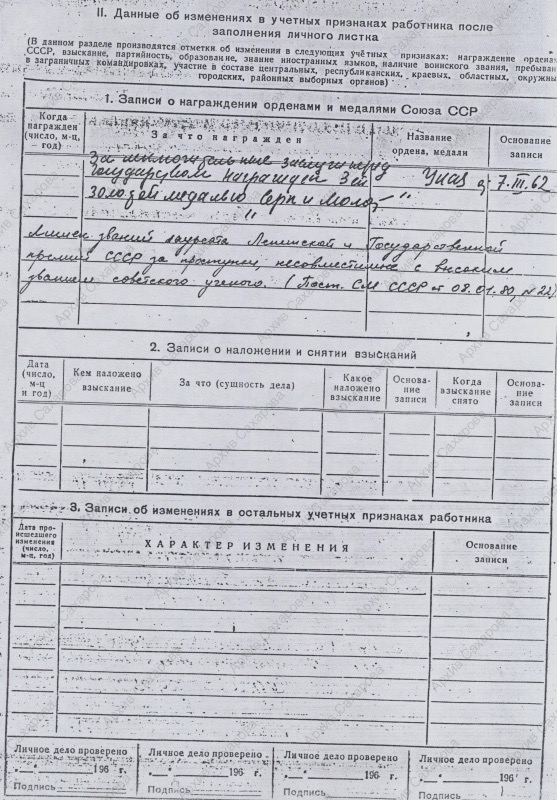 II. Данные об изменениях в учетных признаках работника после
заполнения личного листка
(В данном разделе производятся отметки об изменении в следующих учётных признаках: награждение ордена
СССР, взыскание, партийность, образование, знание иностранных языков, наличие воинского звания, пребыван
в заграничных командировках, участие в составе центральных, республиканских, краевых, областных, окружны
городских, районных выборных органов)
1. Записи о награждении орденами и медалями Союза ССР
Когда награжден (число, м-ц, год)
За что награжден
Название ордена, медали
Основание записи
За исключительные заслуги перед
Государством награжден 3ей Указ 7.III.62
золотой медалью Серп и Молот "
"
Лишен званий лауреата Ленинской и Государственной
премий СССР за проступки, несовместимые с высоким
званием советского ученого. (Пост. СМ СССР от 08.01.80, № 22)
2. Записи о наложении и снятии взысканий
Дата (число, м-ц и год)
Кем наложено взыскание
За что (сущность дела)
Какое наложено взыскание
Основание записи
Когда взыскание снято
Основание записи
3. Записи об изменениях в остальных учетных признаках работника
Дата происшедшего изменения (число, м-ц, год)
ХАРАКТЕР ИЗМЕНЕНИЯ
Основание записи
Личное дело проверено Личное дело проверено Личное дело проверено Личное дело проверено
196 г. 196 г. 196 г. 196 г.
Подпись Подпись Подпись Подпись
Архив Сахарова